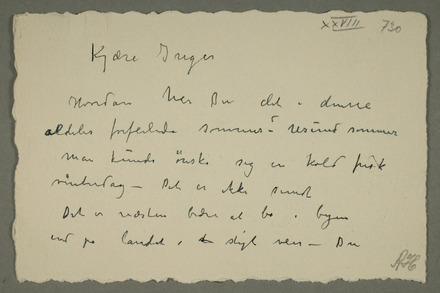 XXVIII 730
Kjære Inger
Hvordan har Du det i denne
aldeles forferdede sommer
man kunde ønske sig en kold frisk
vinterdag – Det er ikke sundt
Det er næsten bedre at bo i byen
end på landet i sligt veir – Du